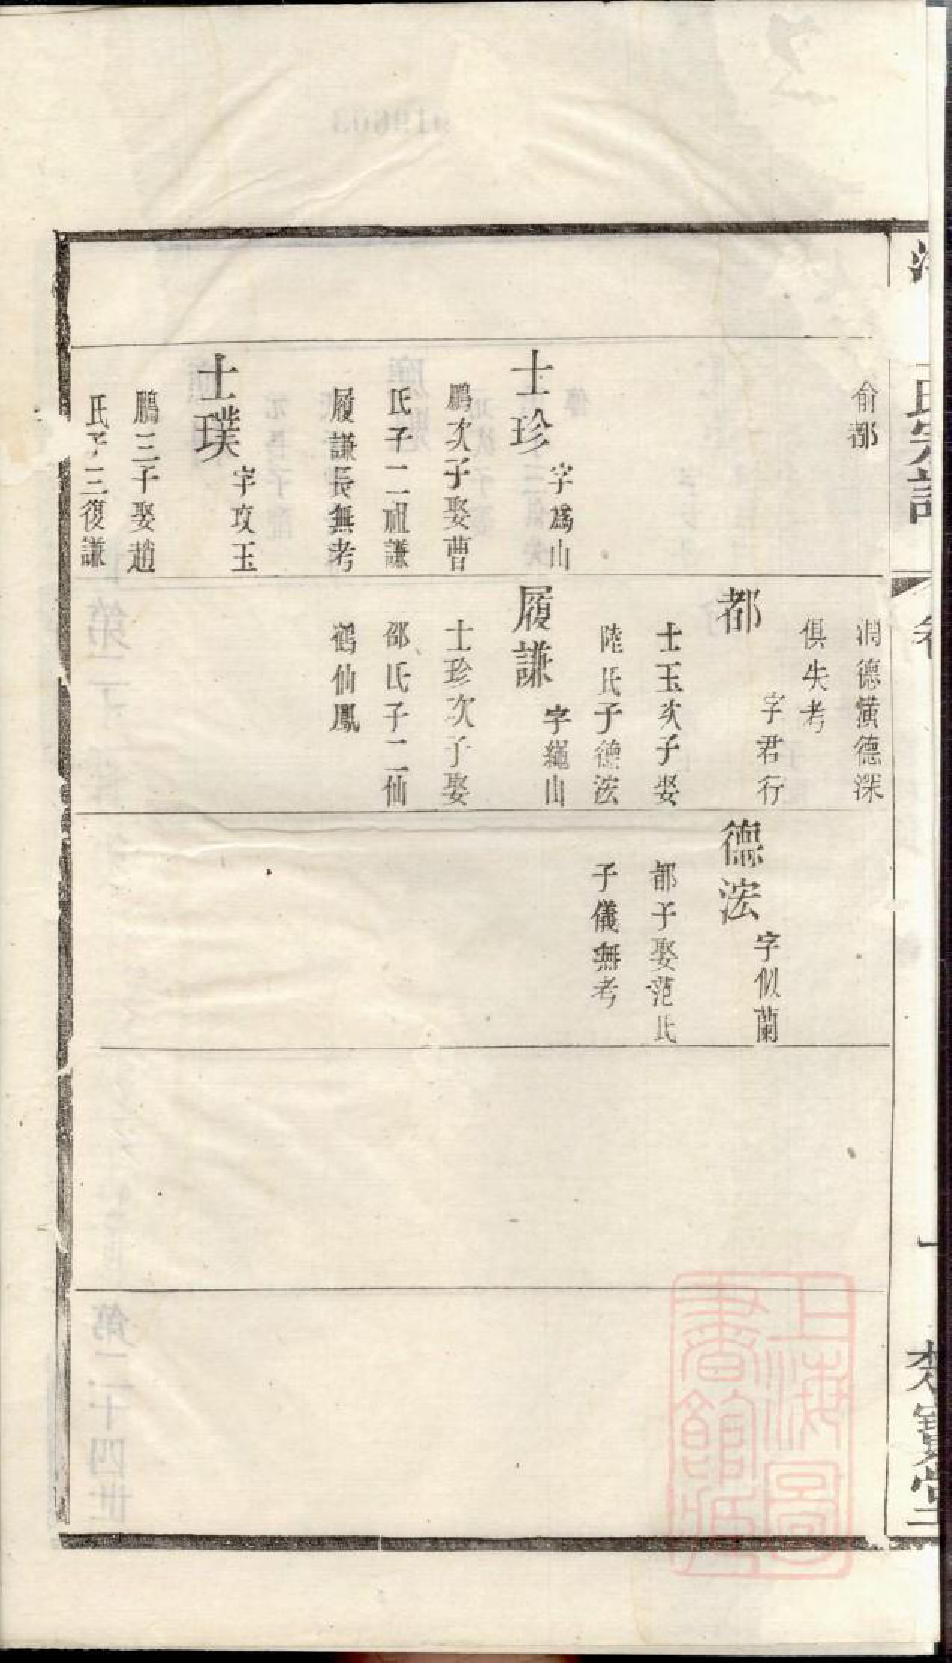 氏宗譜
俞都
士珍 字爲山
鵬次子娶曹
氏子二祖謙
履謙長無考
士璞 字攻玉
鵬三子娶趙
氏子三復謙
潤德懭德深
俱失考
都 字君行
士玉次子娶
陸氏子德浤
履謙 字繩山
士珍次子娶
邵氏子二仙
鶴仙鳳
德浤 字似蘭
都子娶范氏
子儀無考
上海圖
書館藏